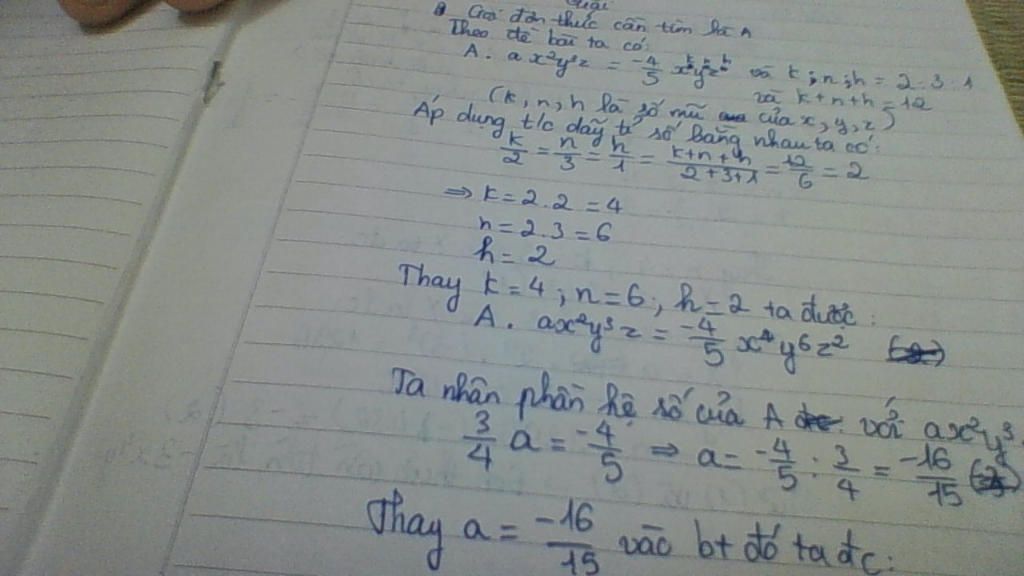 Giải
Gọi đơn thức cần tìm là A
Theo đề bài ta có:
A . ax²y³z = -4/5 xᵏyⁿzʰ và k ; n ; h = 2 : 3 : 1
và k+n+h = 12
(k, n, h là số mũ của x, y, z)
Áp dụng t/c dãy tỉ số bằng nhau ta có:
k/2 = n/3 = h/1 = k+n+h/2+3+1 = 12/6 = 2
⇒ k = 2.2 = 4
n = 2.3 = 6
h = 2
Thay k = 4 ; n = 6 ; h = 2 ta được:
A . ax²y³z = -4/5 x⁴y⁶z²
Ta nhân phần hệ số của A với ax²y³
3/4 a = -4/5 ⇒ a = -4/5 . 3/4 = -16/15
Thay a = -16/15 vào bt đó ta đc: